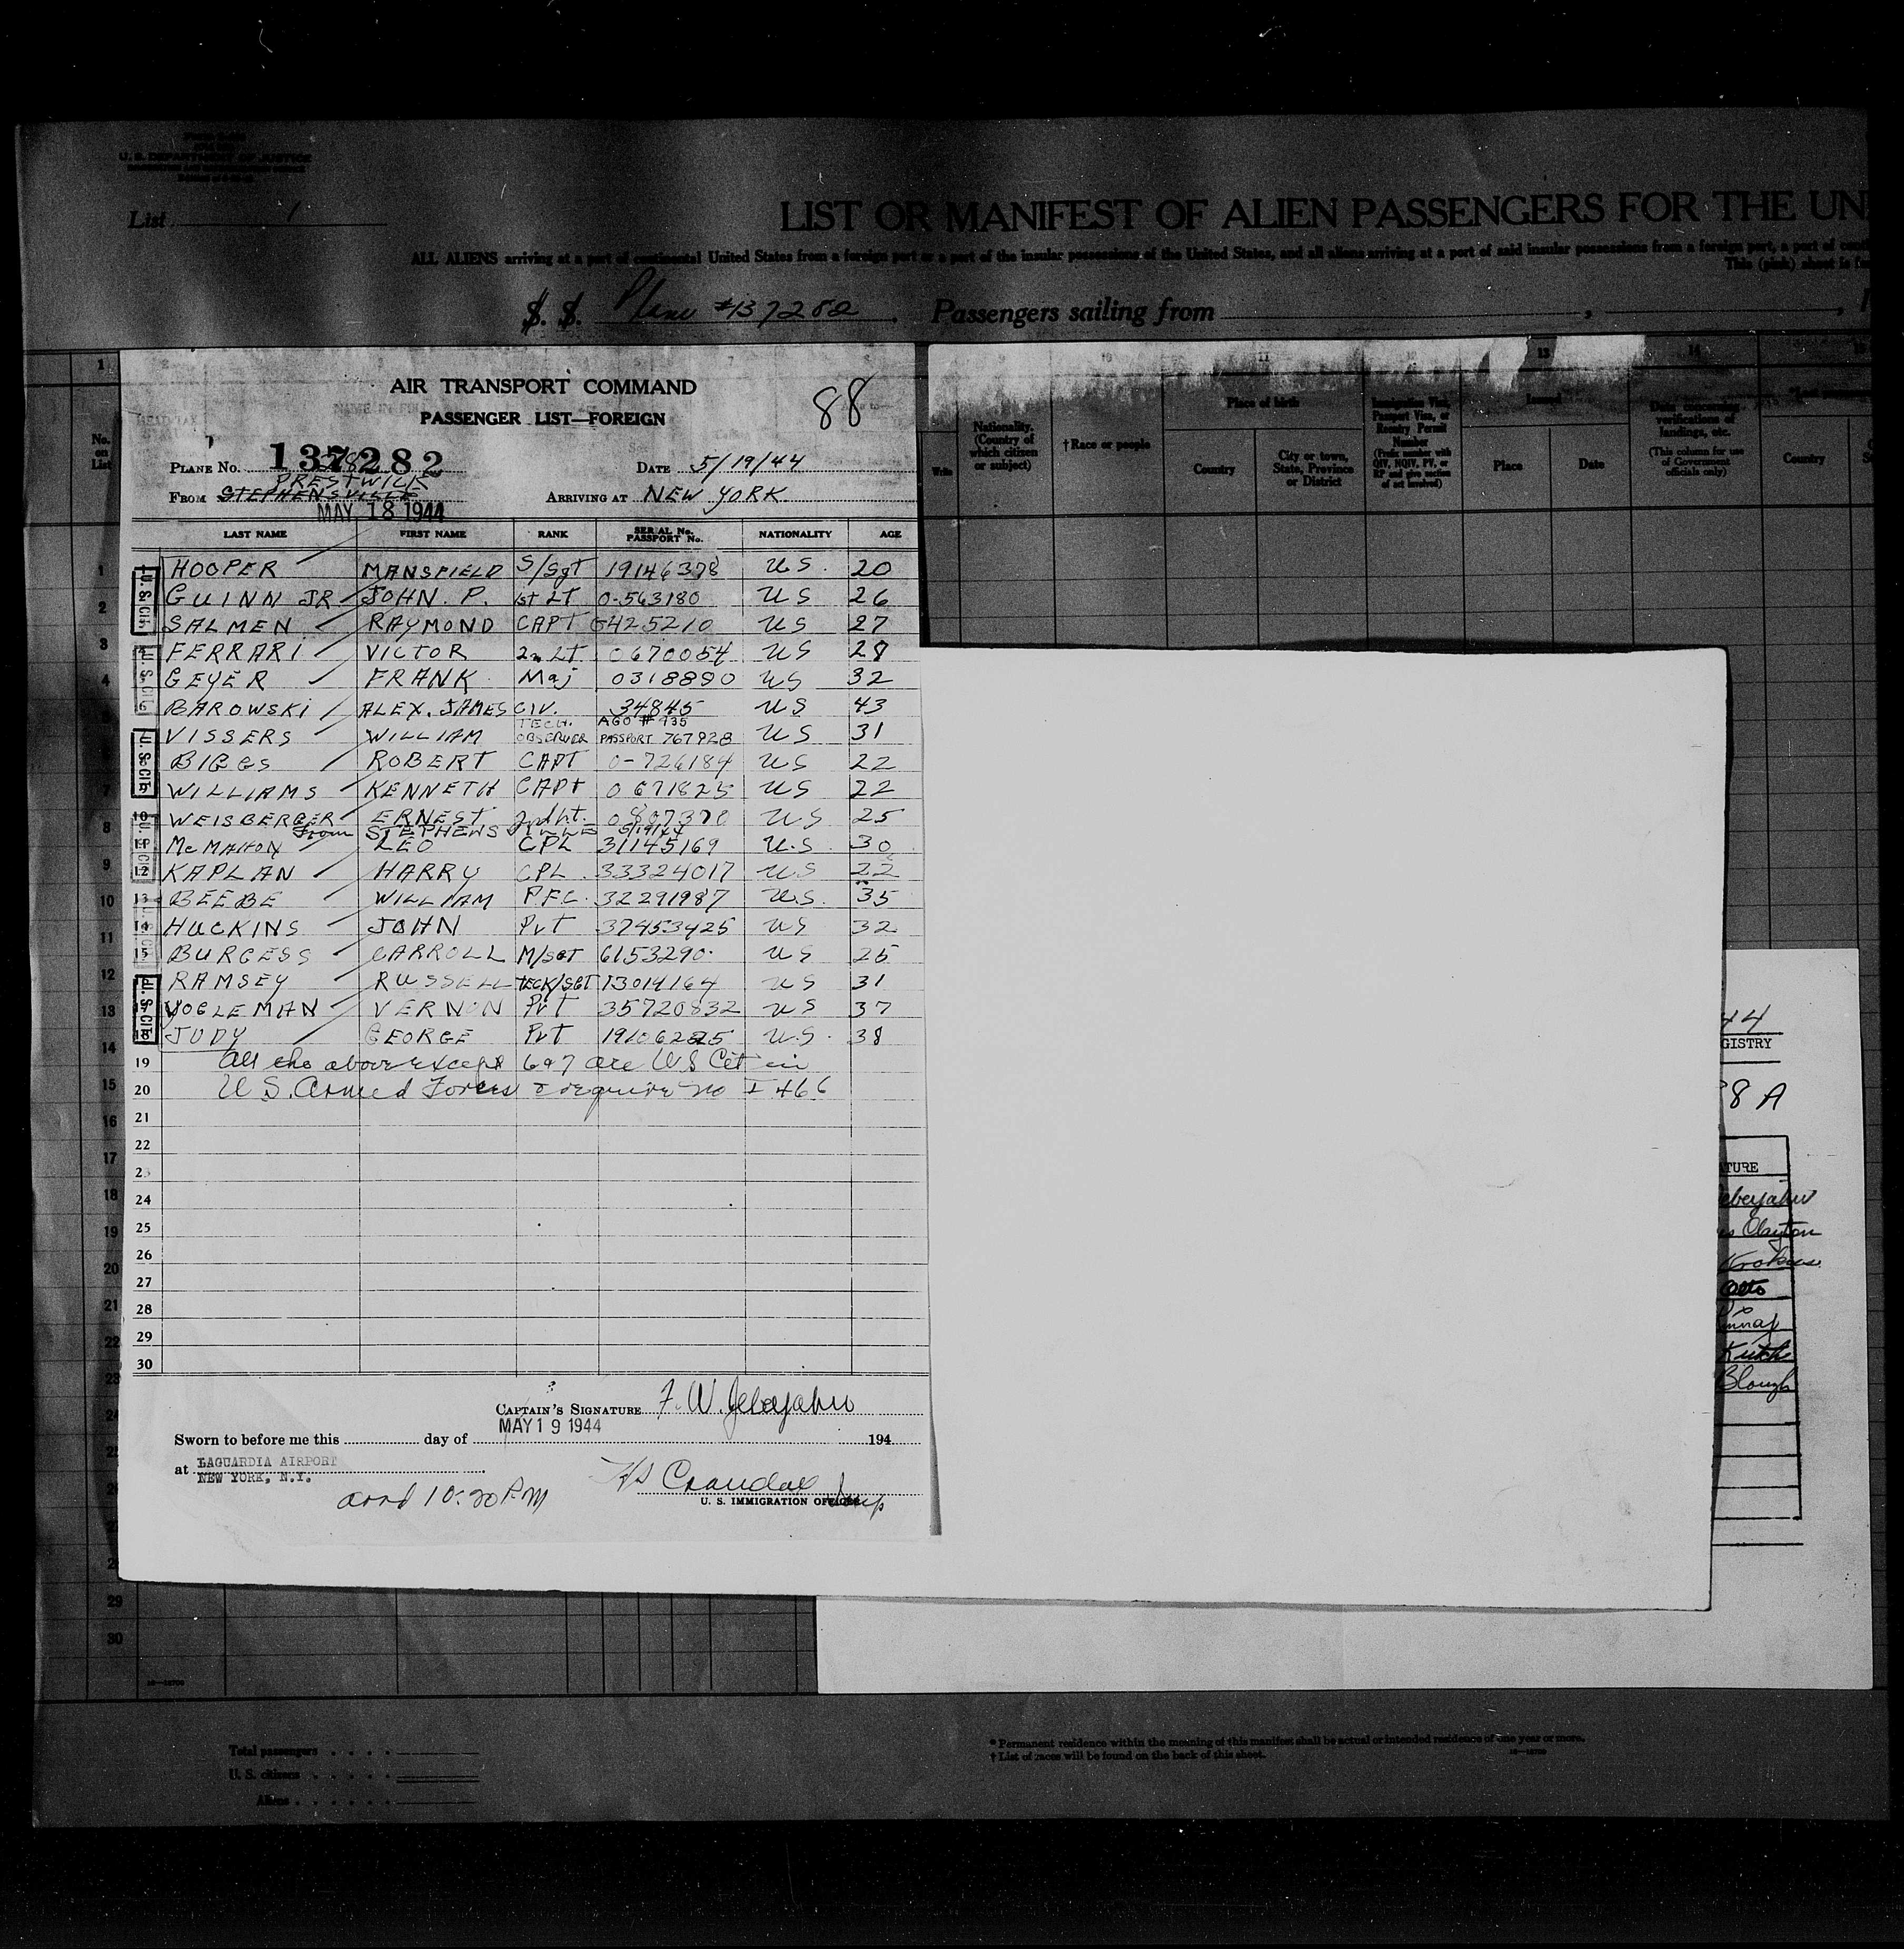 U. S. DEPARTMENT OF JUSTICE
List 1
LIST OR MANIFEST OF ALIEN PASSENGERS FOR THE UN
ALL ALIENS arriving at a port of continental United States from a foreign port or a port of the insular possessions of the United States, and all aliens arriving at a port of said insular possessions from a foreign port, a port of
This (pink) sheet is
S. S. Plane #137282. Passengers sailing from
AIR TRANSPORT COMMAND
PASSENGER LIST—FOREIGN
88
PLANE No. 137282 DATE 5/19/44
PRESTWICK
FROM STEPHENSVILLE ARRIVING AT NEW YORK
MAY 18 1944
LAST NAME FIRST NAME RANK SERIAL No. PASSPORT No. NATIONALITY AGE
HOOPER MANSFIELD S/Sgt 19146378 US. 20
GUINN JR JOHN. P. 1st LT 0-563180 US 26
SALMEN RAYMOND CAPT 0425210 US 27
FERRARI VICTOR 2n LT 0670054 US 28
GEYER FRANK Maj 0318890 US 32
BAROWSKI ALEX. JAMES CIV. 34845 US 43
TECH. AGO # 935
VISSERS WILLIAM OBSERVER PASSPORT 767928 US 31
BIGGS ROBERT CAPT 0-726184 US 22
WILLIAMS KENNETH CAPT 0671825 US 22
10 WEISBERGER ERNEST 2nd Lt. 0807370 US 25
From STEPHENSVILLE 5/19/44
McMAHON LEO CPL 31145169 U.S. 30
12 KAPLAN HARRY CPL 33324017 US 22
13 BEEBE WILLIAM P.F.C. 32291987 U.S. 35
14 HUCKINS JOHN PvT 37453425 US 32
15 BURGESS CARROLL M/SGT 6153290. US 25
RAMSEY RUSSELL TECK/SGT 13014164 US 31
VOGLEMAN VERNON PvT 35720832 US 37
18 JUDY GEORGE PvT 19106225 U.S. 38
19 All the above except 6&7 are US Cit in
20 U S. Armed Forces & require no I 466
21
22
23
24
25
26
27
28
29
30
CAPTAIN'S SIGNATURE F. W. Jeberjahn
MAY 19 1944
Sworn to before me this day of 194
at LAGUARDIA AIRPORT
NEW YORK, N.Y.
arrd 10:20 PM
Crandall
U. S. IMMIGRATION OFFICER
No. on List
Nationality. (Country of which citizen or subject)
†Race or people
Place of birth
Country
City or town, State, Province or District
Immigration Visa, Passport Visa, or Reentry Permit Number
(Prefix number with QIV, NQIV, PV, or RP and give section of act involved)
Issued
Place
Date
Data concerning verifications of landings, etc.
(This column for use of Government officials only)
Country
44
GISTRY
8 A
TURE
eberjahn
Clayton
Otto
Kutch
Blough
29
30
Total passengers
U. S. citizens
Aliens
* Permanent residence within the meaning of this manifest shall be actual or intended residence of one year or more.
† List of races will be found on the back of this sheet.